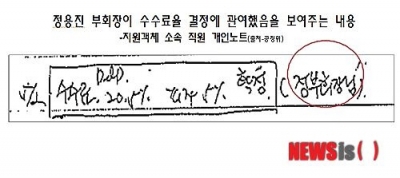 정용진 부회장이 수수료율 결정에 관여했음을 보여주는 내용
-지원객체 소속 직원 개인노트(출처-공정위)
D&D
수수료 20.5% 피자 5% 확정 (정부회장님)
NEWSis( )